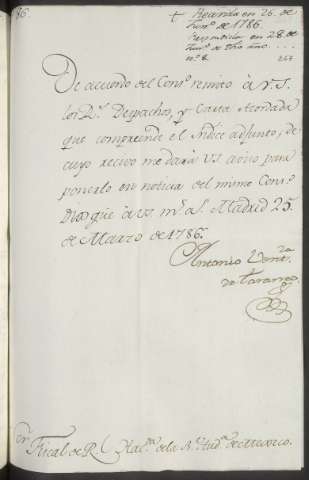 86.
+ Recivida en 26. de
Jun.º de 1786.
Respondida en 28. de
Jun.º de dho año . . .
n.º 8.
De acuerdo del Cons.º remito à V. S.
los R.s Despachos, y Carta Acordada
que comprende el Indice adjunto; de
cuyo recivo me dará VS aviso para
ponerlo en noticia del mismo Cons.º
Dios gūe à VS m.s a.s Madrid 25
de Marzo de 1786.
Antonio Vent.ra
de Taranco
S.or Fiscal de R.l Haz.da de la R.l Aud.a de Mexico.